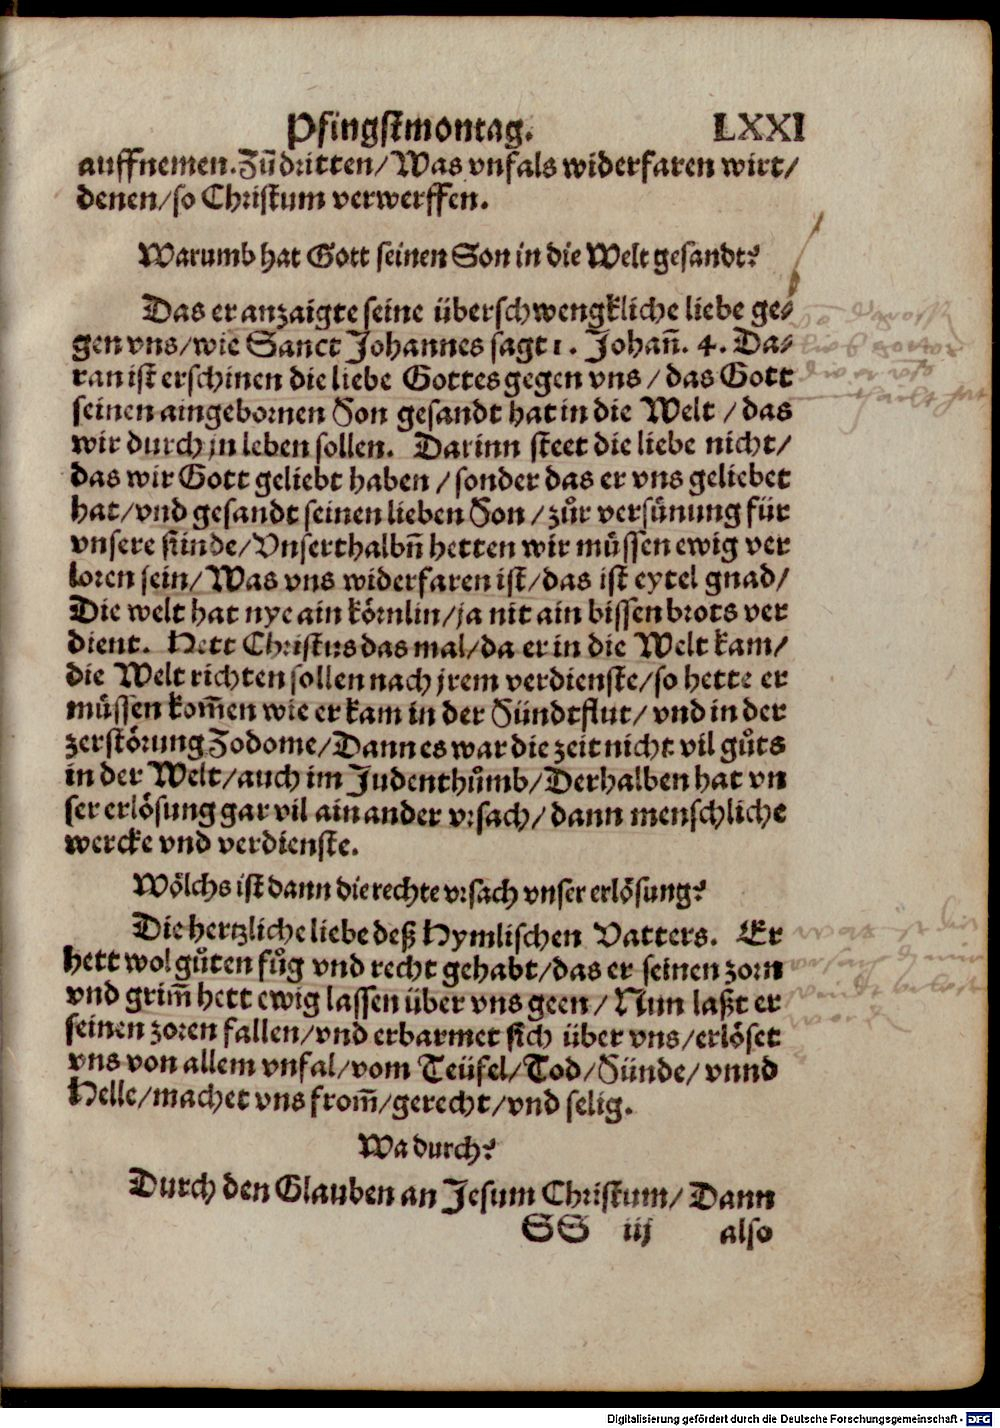 Pfingstmontag. LXXI
auffnemen. Zũ dritten/ Was vnfals widerfaren wirt/
denen/ so Christum verwerffen.
Warumb hat Gott seinen Son in die Welt gesandt?
Das er anzaigte seine überschwengkliche liebe ge-
gen vns/ wie Sanct Johannes sagt 1. Johañ. 4. Da-
ran ist erschinen die liebe Gottes gegen vns / das Gott
seinen aingebornen Son gesandt hat in die Welt / das
wir durch jn leben sollen. Darinn steet die liebe nicht/
das wir Gott geliebt haben / sonder das er vns geliebet
hat/ vnd gesandt seinen lieben Son / zůr versünung für
vnsere sünde/ Vnserthalbñ hetten wir müssen ewig ver
loren sein/ Was vns widerfaren ist/ das ist eytel gnad/
Die welt hat nye ain körnlin/ ja nit ain bissen brots ver
dient. Hett Christus das mal/ da er in die Welt kam/
die Welt richten sollen nach jrem verdienste/ so hette er
müssen kom̃en wie er kam in der Sündtflut/ vnd in der
zerstörung Sodome/ Dann es war die zeit nicht vil gůts
in der Welt/ auch im Judenthůmb/ Derhalben hat vn
ser erlösung gar vil ain ander vrsach/ dann menschliche
wercke vnd verdienste.
Wölchs ist dann die rechte vrsach vnser erlösung?
Die hertzliche liebe deß Hymlischen Vatters. Er
hett wol gůten fůg vnd recht gehabt/ das er seinen zorn
vnd grim̃ hett ewig lassen über vns geen/ Nun laßt er
seinen zoren fallen/ vnd erbarmet sich über vns/ erlöset
vns von allem vnfal/ vom Teüfel/ Tod/ Sünde/ vnnd
Helle/ machet vns from̃/ gerecht/ vnd selig.
Wa durch?
Durch den Glauben an Jesum Christum/ Dann
SS iij also
Digitalisierung gefördert durch die Deutsche Forschungsgemeinschaft - DFG